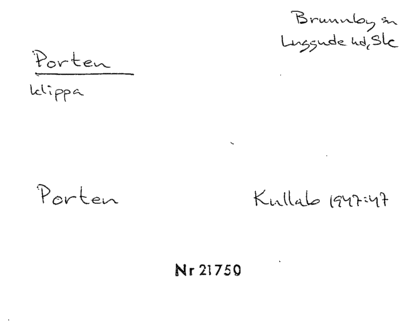 Brunnby sn
Luggude hd, Sk
Porten
klippa
Porten
Kullab 1947:47
Nr 21750